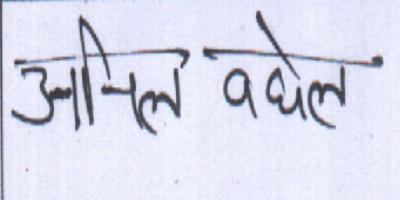 अनिल वघेल